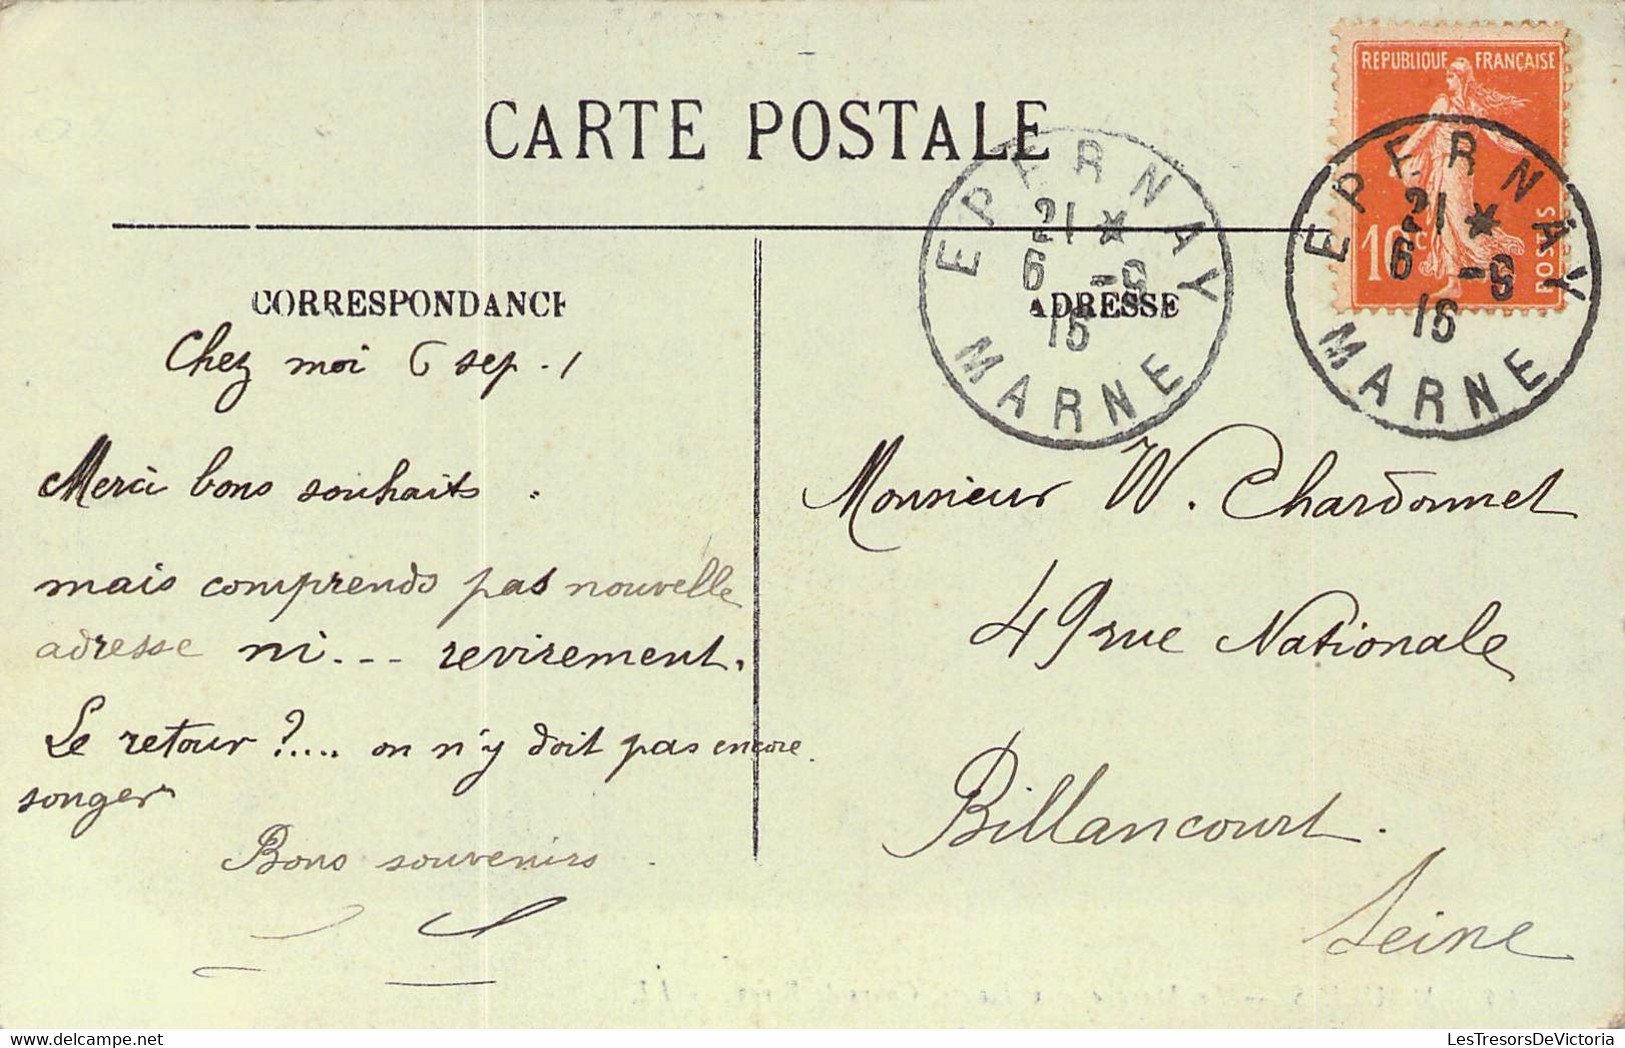 REPUBLIQUE FRANÇAISE
10c
POSTES
CARTE POSTALE
EPERNAY
21 *
6 -9
16
MARNE
EPERNAY
21 *
6 -9
16
MARNE
CORRESPONDANCE
ADRESSE
Chez moi 6 sep.
Merci bons souhaits.
mais comprends pas nouvelle
adresse ni... revirement.
Le retour ?.... on n'y doit pas encore
songer
Bons souvenirs.
Monsieur W. Chardonnet
49 rue Nationale
Billancourt.
Seine
LesTresorsDeVictoria